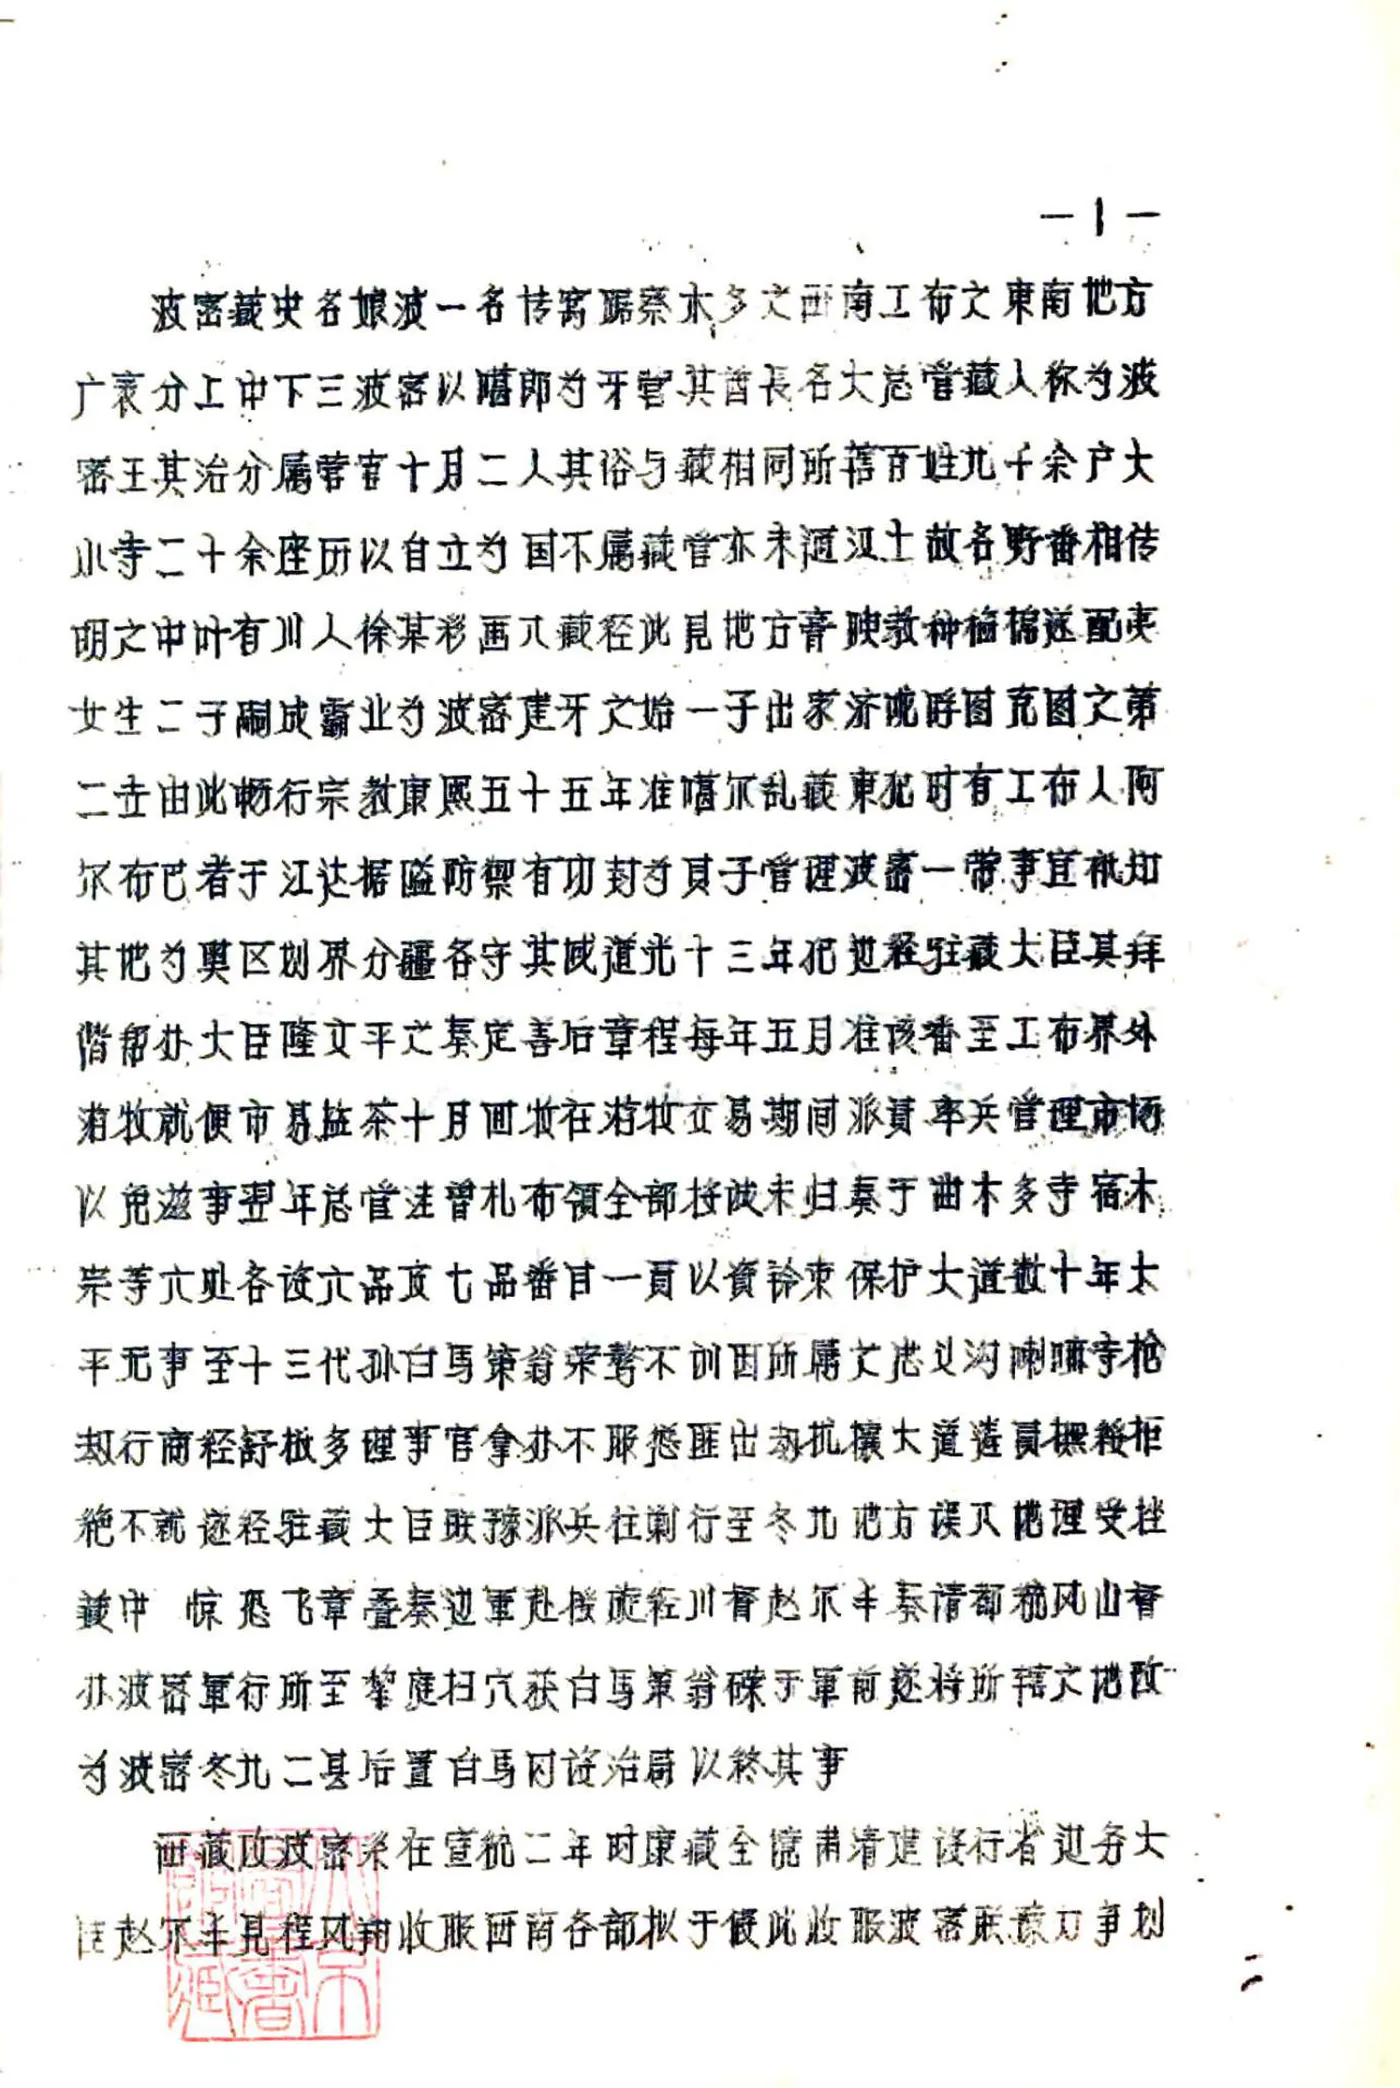 —1—
波密藏史名娘波一名传窝踞察木多之西南工布之東南地方
广袤分上中下三波密以噶郎为牙营其酋長名大总管藏人称为波
密王其治分属营官十月二人其俗与藏相同所辖百姓九千余户大
小寺二十余座历以自立为国不属藏管亦未通汉土故各野番相传
明之中叶有川人徐某彩画入藏经此見地方膏腴教种稻棉遂配夷
女生二子嗣成霸业为波密建牙之始一子出家济咙呼图克图之第
二世由此畅行宗教康熙五十五年准噶尔乱藏東犯时有工布人阿
尔布巴者于江达据隘防禦有功封为貝子管理波密一带事宜秖知
其地为奥区划界分疆各守其域道光十三年犯边经驻藏大臣其拜
偕帮办大臣隆文平之奏定善后章程每年五月准该番至工布界外
游牧就便市易盐茶十月回牧在游牧交易期间派員率兵管理市场
以免滋事翌年总管洼曾札布領全部投诚未归奏于曲木多寺宿木
宗等六处各设六品及七品番目一員以資鈐束保护大道数十年太
平无事至十三代孙白馬策翁荣骜不训因所属文忠义沟喇嘛寺抢
劫行商经舒梭多理事官拿办不服怂匪出劫扰攘大道遣員撫綏拒
绝不就遂经驻藏大臣联豫派兵往剿行至冬九地方误入地理受挫
藏中 惊恐飞章叠奏边軍赴援旋经川督赵尔丰奏请都统凤山督
办波密軍行所至犂庭扫穴获白馬策翁磔于軍前遂将所辖之地改
为波密冬九二县后置白馬冈设治局以终其事
西藏改波密系在宣统二年时康藏全境肃清建设行省边务大
臣赵尔丰見程凤翔收服西南各部拟于便此收服波密联豫力争划